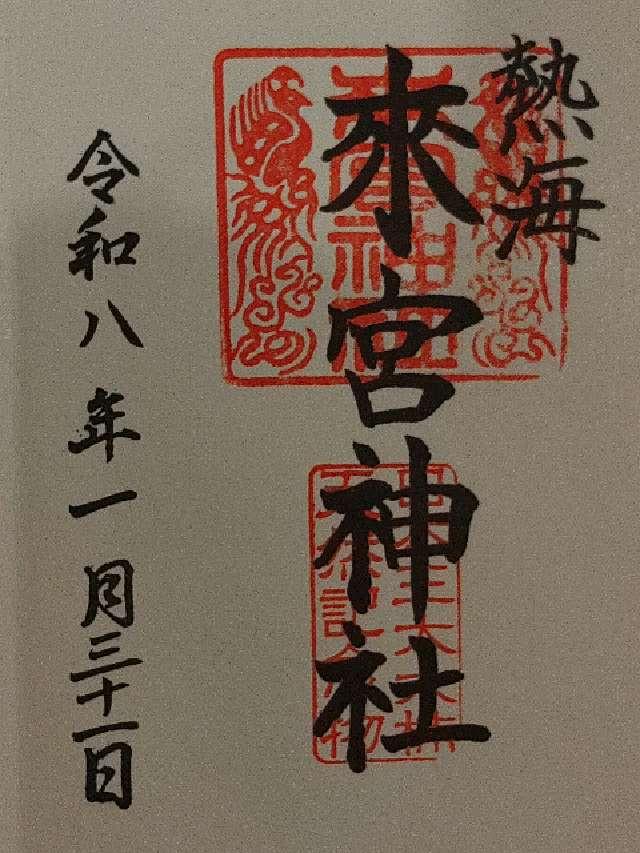 熱海
來宮神社
來宮神社
天然記念物
令和八年一月三十一日